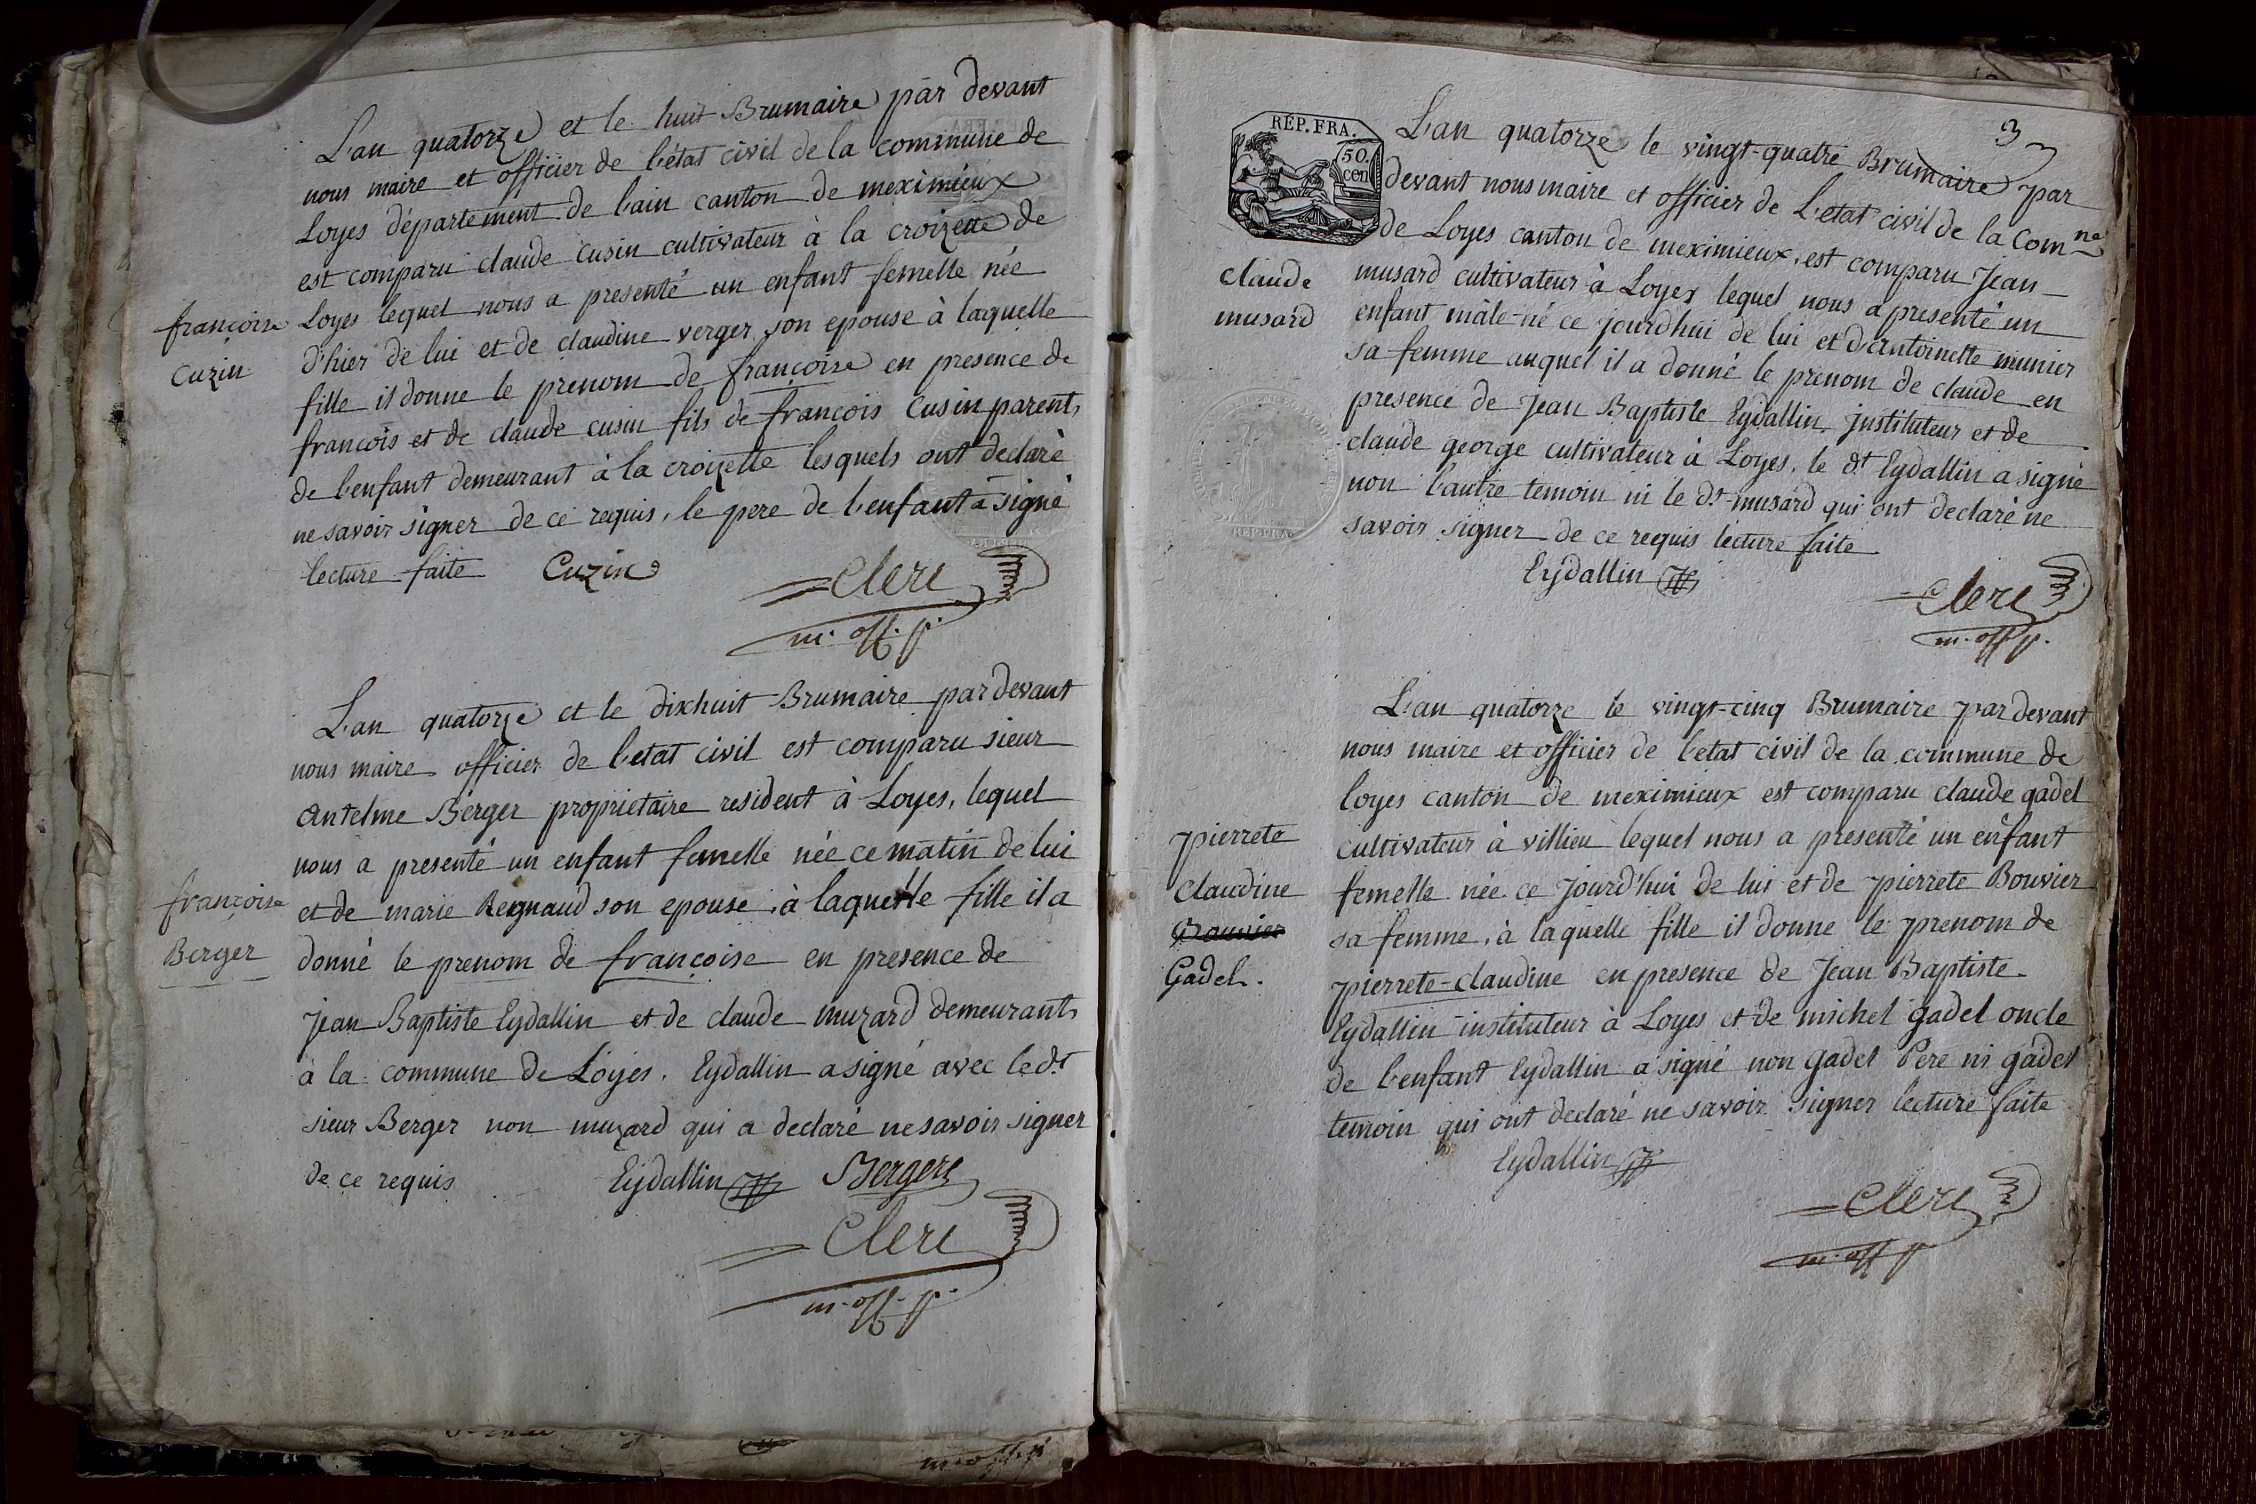 L'an quatorze et le huit Brumaire par devant
nous maire et officier de l'état civil de la commune de
Loyes département de l'ain canton de meximieux
est comparu claude cusin cultivateur à la croizette de
Loyes lequel nous a presenté un enfant femelle née
d'hier de lui et de claudine verger son epouse à laquelle
fille il donne le prenom de françoise en presence de
francois et de claude cusin fils de francois Cusin parents
de l'enfant demeurant à la croizette lesquels ont declaré
ne savoir signer de ce requis, le pere de l'enfant a signé
lecture faite Cuzin
Clerc
m. off. p.
françoise
Cuzin
L'an quatorze et le dixhuit Brumaire par devant
nous maire officier de l'etat civil est comparu sieur
Antelme Berger proprietaire resident à Loyes, lequel
nous a presenté un enfant femelle née ce matin de lui
et de marie Regnaud son epouse, à laquelle fille il a
donné le prenom de françoise en presence de
Jean Baptiste Eydallin et de claude muzard demeurants
à la commune de Loyes. Eydallin a signé avec le dt
sieur Berger non muzard qui a declaré ne savoir signer
de ce requis Eydallin Berger
Clerc
m. off. p.
françoise
Berger
m. off. p.
3
RÉP. FRA.
50.
cen
L'an quatorze le vingt-quatre Brumaire par
devant nous maire et officier de L'etat civil de la Comne
de Loyes canton de meximieux, est comparu Jean
musard cultivateur à Loyes lequel nous a presenté un
enfant mâle né ce jourd'hui de lui et d'antoinette munier
sa femme auquel il a donné le prenom de claude en
presence de Jean Baptiste Eydallin Instituteur et de
claude george cultivateur à Loyes, le dt Eydallin a signé
non l'autre temoin ni le dt musard qui ont declaré ne
savoir signer de ce requis lecture faite
Eydallin
Clerc
m. off. p.
claude
musard
L'an quatorze le vingt-cinq Brumaire par devant
nous maire et officier de l'etat civil de la commune de
loyes canton de meximieux est comparu claude gadel
cultivateur à villieu lequel nous a presenté un enfant
femelle née ce Jourd'hui de lui et de pierrete Bouvier
sa femme, à laquelle fille il donne le prenom de
pierrete-claudine en presence de Jean Baptiste
Eydallin instituteur à Loyes et de michel gadel oncle
de l'enfant Eydallin a signé non gadel Pere ni gadel
temoin qui ont declaré ne savoir signer lecture faite
Eydallin
Clerc
m. off. p.
pierrete
claudine
Bouvier
Gadel.